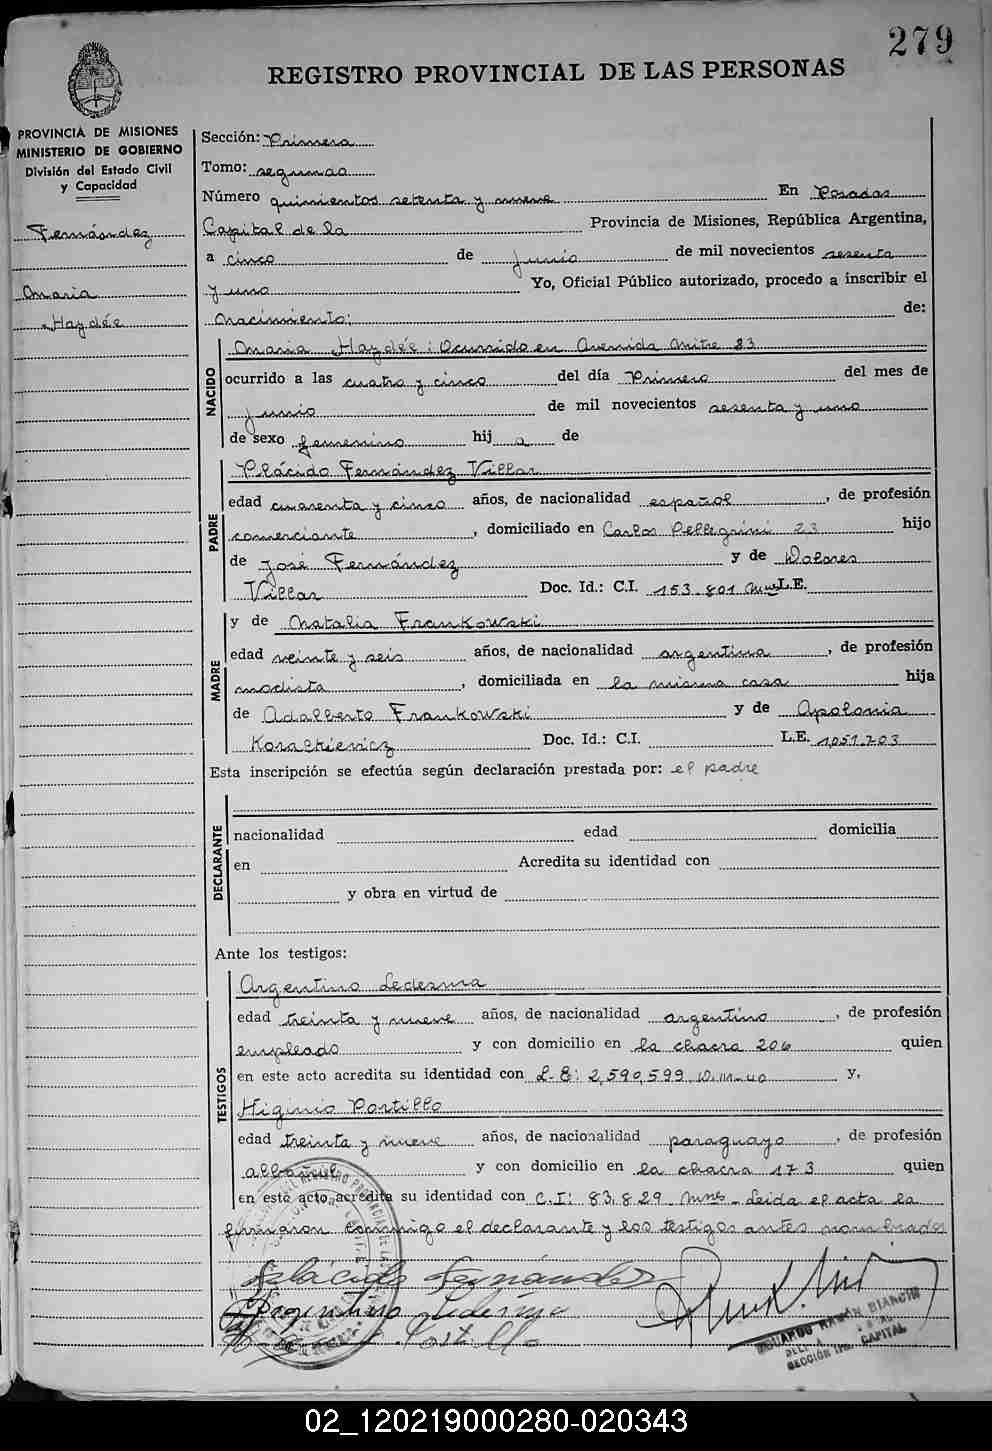 279
REGISTRO PROVINCIAL DE LAS PERSONAS
PROVINCIA DE MISIONES
MINISTERIO DE GOBIERNO
División del Estado Civil
y Capacidad
Fernández
Maria
Haydée
Sección: Primera
Tomo: segundo
Número quinientos setenta y nueve En Posadas
Capital de la Provincia de Misiones, República Argentina,
a cinco de Junio de mil novecientos sesenta
y uno Yo, Oficial Público autorizado, procedo a inscribir el
Nacimiento: de:
NACIDO
Maria Haydée: Ocurrido en Avenida Mitre 83
ocurrido a las cuatro y cinco del día Primero del mes de
Junio de mil novecientos sesenta y uno
de sexo femenino hij a de
PADRE
Plácido Fernández Villar
edad cuarenta y cinco años, de nacionalidad español, de profesión
comerciante, domiciliado en Carlos Pellegrini 23 hijo
de José Fernández y de Dolores
Villar Doc. Id.: C.I. 153.801 Mnes L.E.
MADRE
y de Natalia Frankowski
edad veinte y seis años, de nacionalidad argentina, de profesión
modista, domiciliada en la misma casa hija
de Adalberto Frankowski y de Apolonia
Doc. Id.: C.I. L.E. 1.051.703
Esta inscripción se efectúa según declaración prestada por: el padre
DECLARANTE
nacionalidad edad domicilia
en Acredita su identidad con
y obra en virtud de
Ante los testigos:
TESTIGOS
Argentino Ledesma
edad treinta y nueve años, de nacionalidad argentino, de profesión
empleado y con domicilio en la chacra 206 quien
en este acto acredita su identidad con L.E: 2,590,599 D.M. 40 y,
Higinio Portillo
edad treinta y nueve años, de nacionalidad paraguayo, de profesión
albañil y con domicilio en la chacra 173 quien
en este acto acredita su identidad con C.I: 83.829 Mnes - Leida el acta la
firmaron conmigo el declarante y los testigos antes nombrados
Plácido Fernández
Argentino Ledesma
Portillo
EDUARDO RAMÓN BIANCHI
SECCIÓN 1ra. CAPITAL
02_120219000280-020343